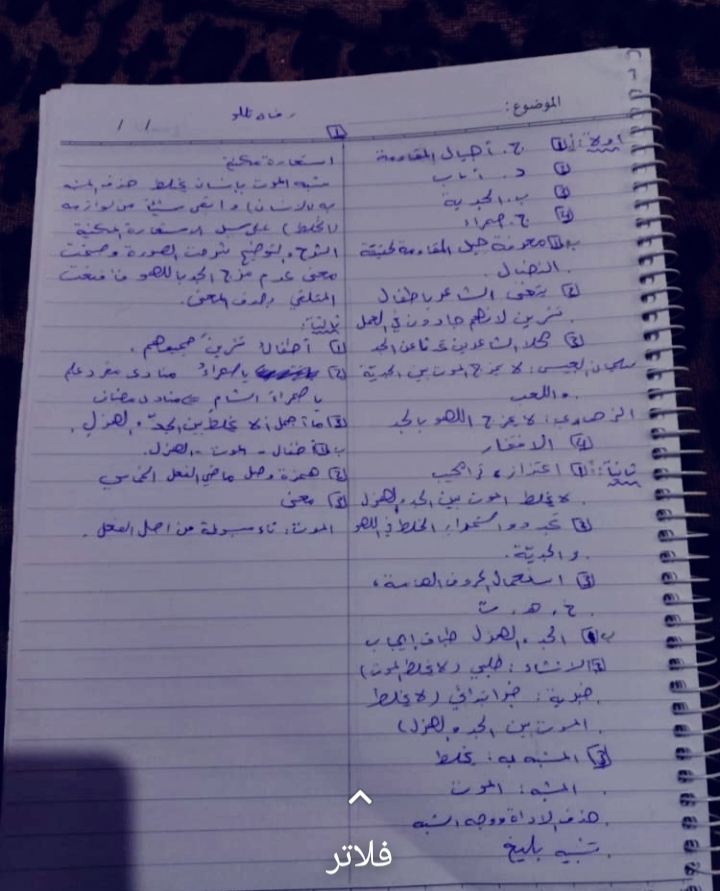 الموضوع:
/ /
أولاً: أ 1 ج. أجيال المقاومة
2 د.
3 ب. الجدية
4 ج. صحراء
ب 1 معرفة جيل المقاومة لحقيقة
النضال.
2 يتغنى الشاعر بأطفال
تشرين لأنهم جادون في العمل
3 كلا الشاعرين عن الجد
سليمان العيسى: لا يمزج الموت بين الجدية
واللعب
الزهاوي: لا يمزج اللهو بالجد
4 الافتقار
ثانياً: أ 1 اعتزاز،
لا يخلط الموت بين الجد والهزل
2 تجدد واستمرار الخلط في اللهو
والجدية.
3 استعمال الحروف الهامسة،
خ، هـ، ت
ب 1 الجد، الهزل طباق إيجاب
2 الانشاء: طلبي (لا يخلط الموت)
خبرية: خبر ابتدائي (لا يخلط
الموت بين الجد والهزل)
3 المشبه به: يخلط
المشبه: الموت
حذف الاداة ووجه الشبه
تشبيه بليغ
1
استعارة مكنية
شبه الموت بإنسان يخلط حذف المشبه
به (الانسان) وابقى شيئاً من لوازمه
(الخلط) على سبيل الاستعارة المكنية
الشرح والتوضيح شرحت الصورة وضحت
معنى عدم مزج الجد باللهو فأقنعت
المتلقي بصدق المعنى.
ثالثاً:
1 أطفال تشرين جميعهم.
2 يا صحراءُ منادى مفرد علم
يا صحراءَ الشام منادى مضاف
3 ما أجمل ألا يخلط بين الجدّ والهزل.
ب 1 أطفال - الموت - الهزل.
2 همزة وصل ماضي الفعل الخماسي
3 معنى
الموت: تاء مبسوطة من اصل الفعل.
فلاتر